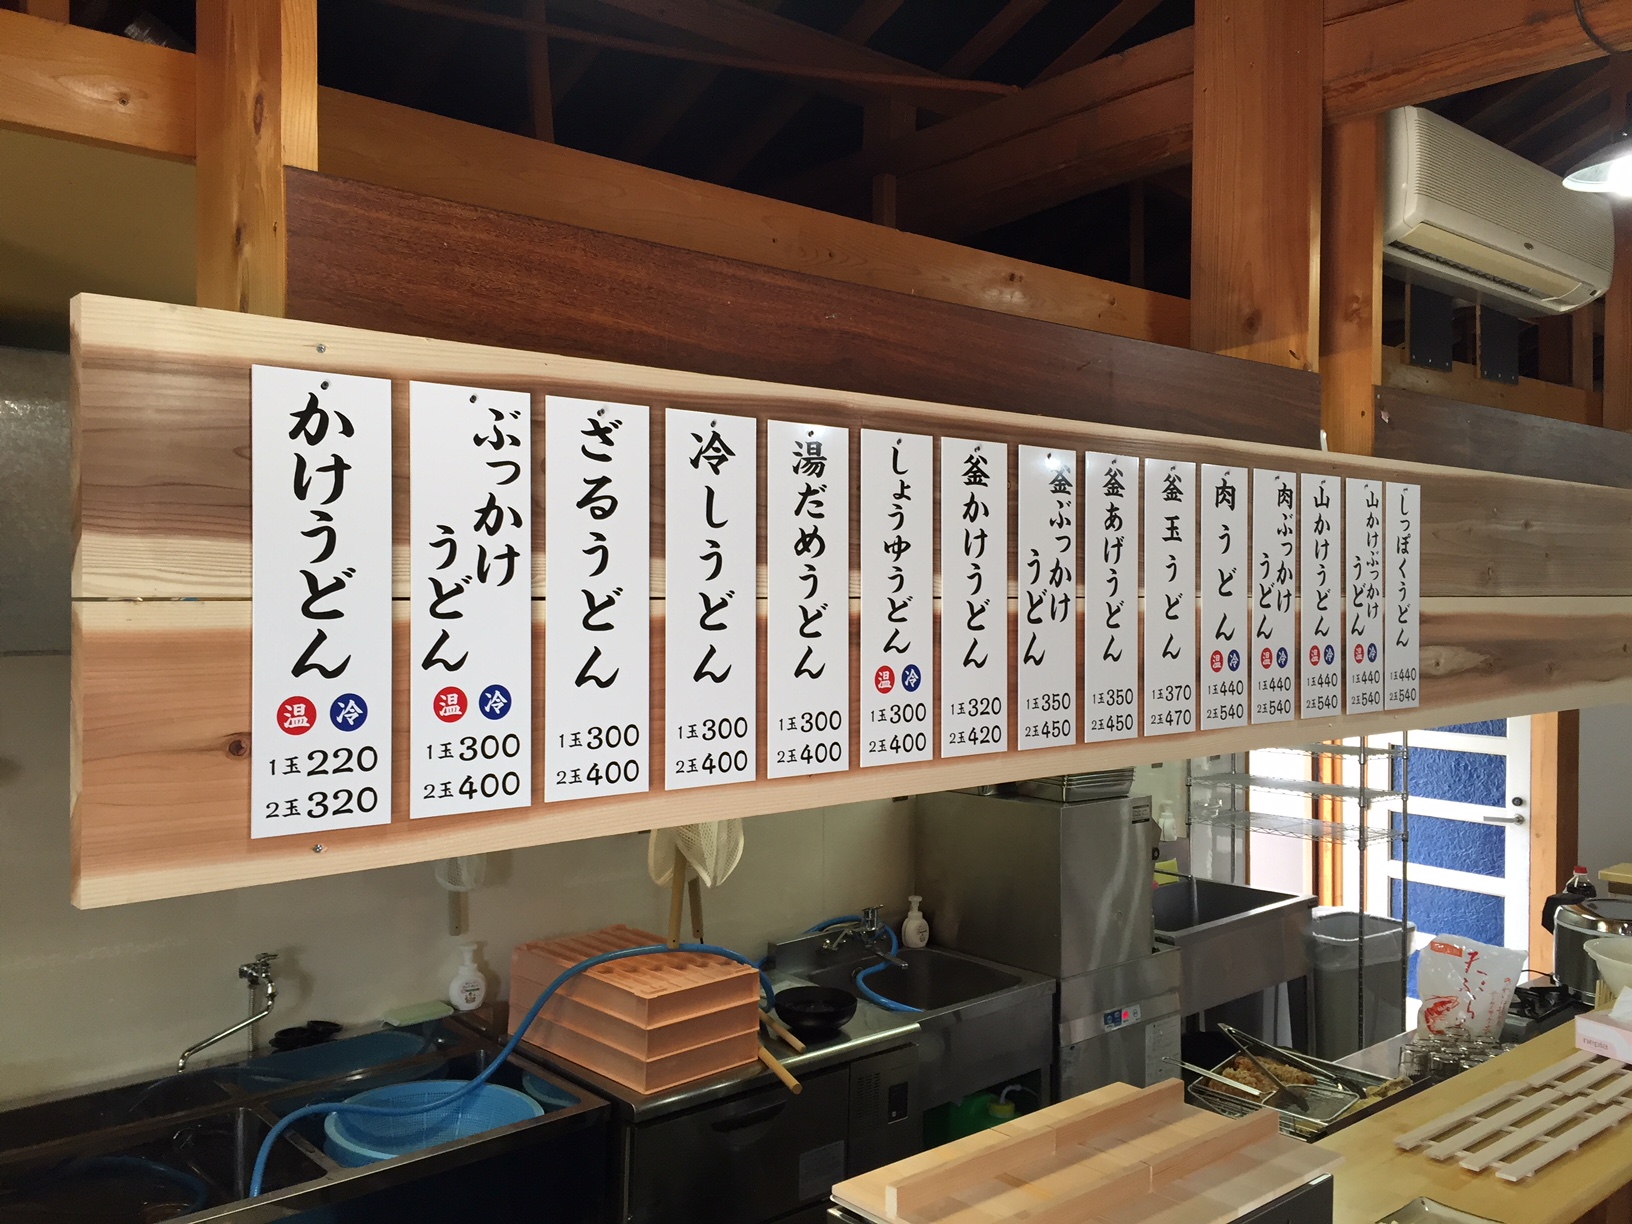 かけうどん
温 冷
1玉220
2玉320
ぶっかけ
うどん
温 冷
1玉300
2玉400
ざるうどん
1玉300
2玉400
冷しうどん
1玉300
2玉400
湯だめうどん
1玉300
2玉400
しょうゆうどん
温 冷
1玉300
2玉400
釜かけうどん
1玉320
2玉420
釜ぶっかけ
うどん
1玉350
2玉450
釜あげうどん
1玉350
2玉450
釜玉うどん
1玉370
2玉470
肉うどん
温 冷
1玉440
2玉540
肉ぶっかけ
うどん
温 冷
1玉440
2玉540
山かけうどん
温 冷
1玉440
2玉540
山かけぶっかけ
うどん
温 冷
1玉440
2玉540
しっぽくうどん
1玉440
2玉540
nepia